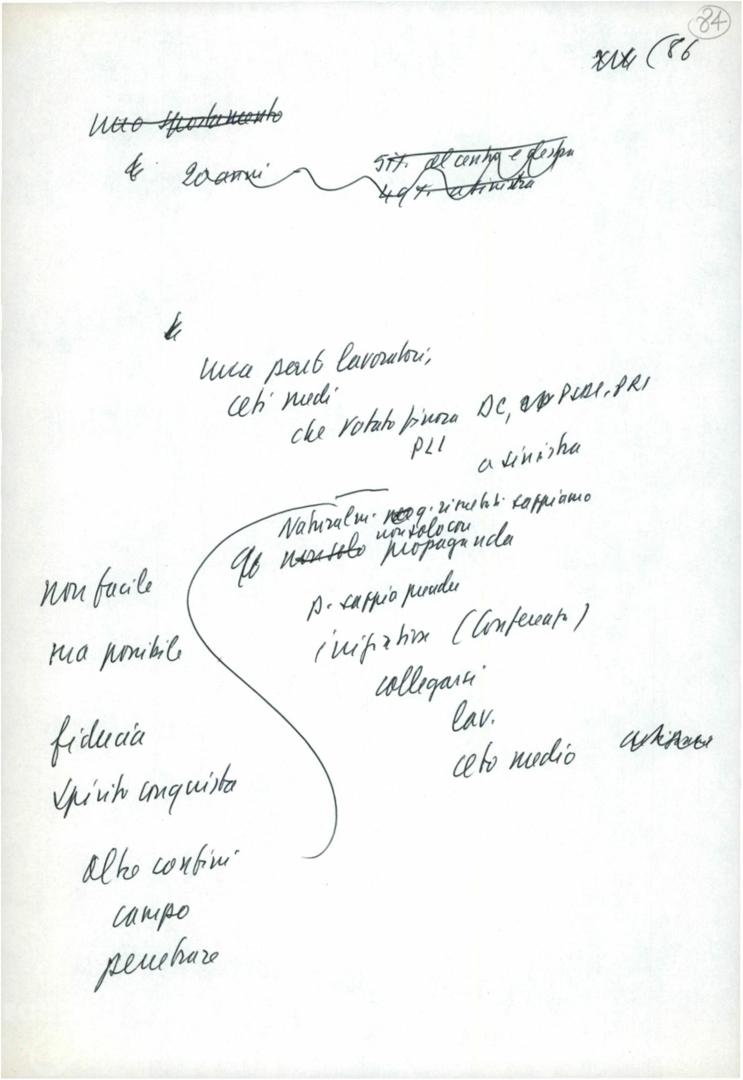 84
XIX (86
uno spostamento
20 anni
51%. al centro e destra
49%. a sinistra
una parte lavoratori,
ceti medi
che votato finora DC, PSDI, PRI
PLI
a sinistra
Naturalm. sappiamo
non solo con
non solo propaganda
non facile
p. sappia prendere
ma possibile
iniziative (Conferenza)
collegarsi
lav.
fiducia
ceto medio
spirito conquista
oltre confini
campo
penetrare